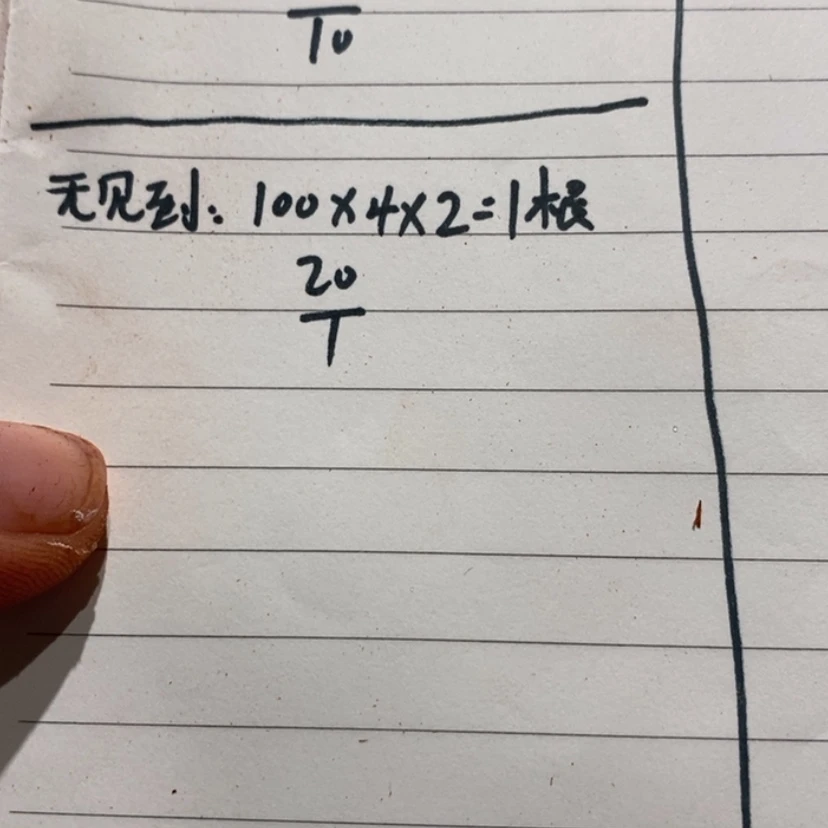 10
无见到: 100×4×2=1根
20
1